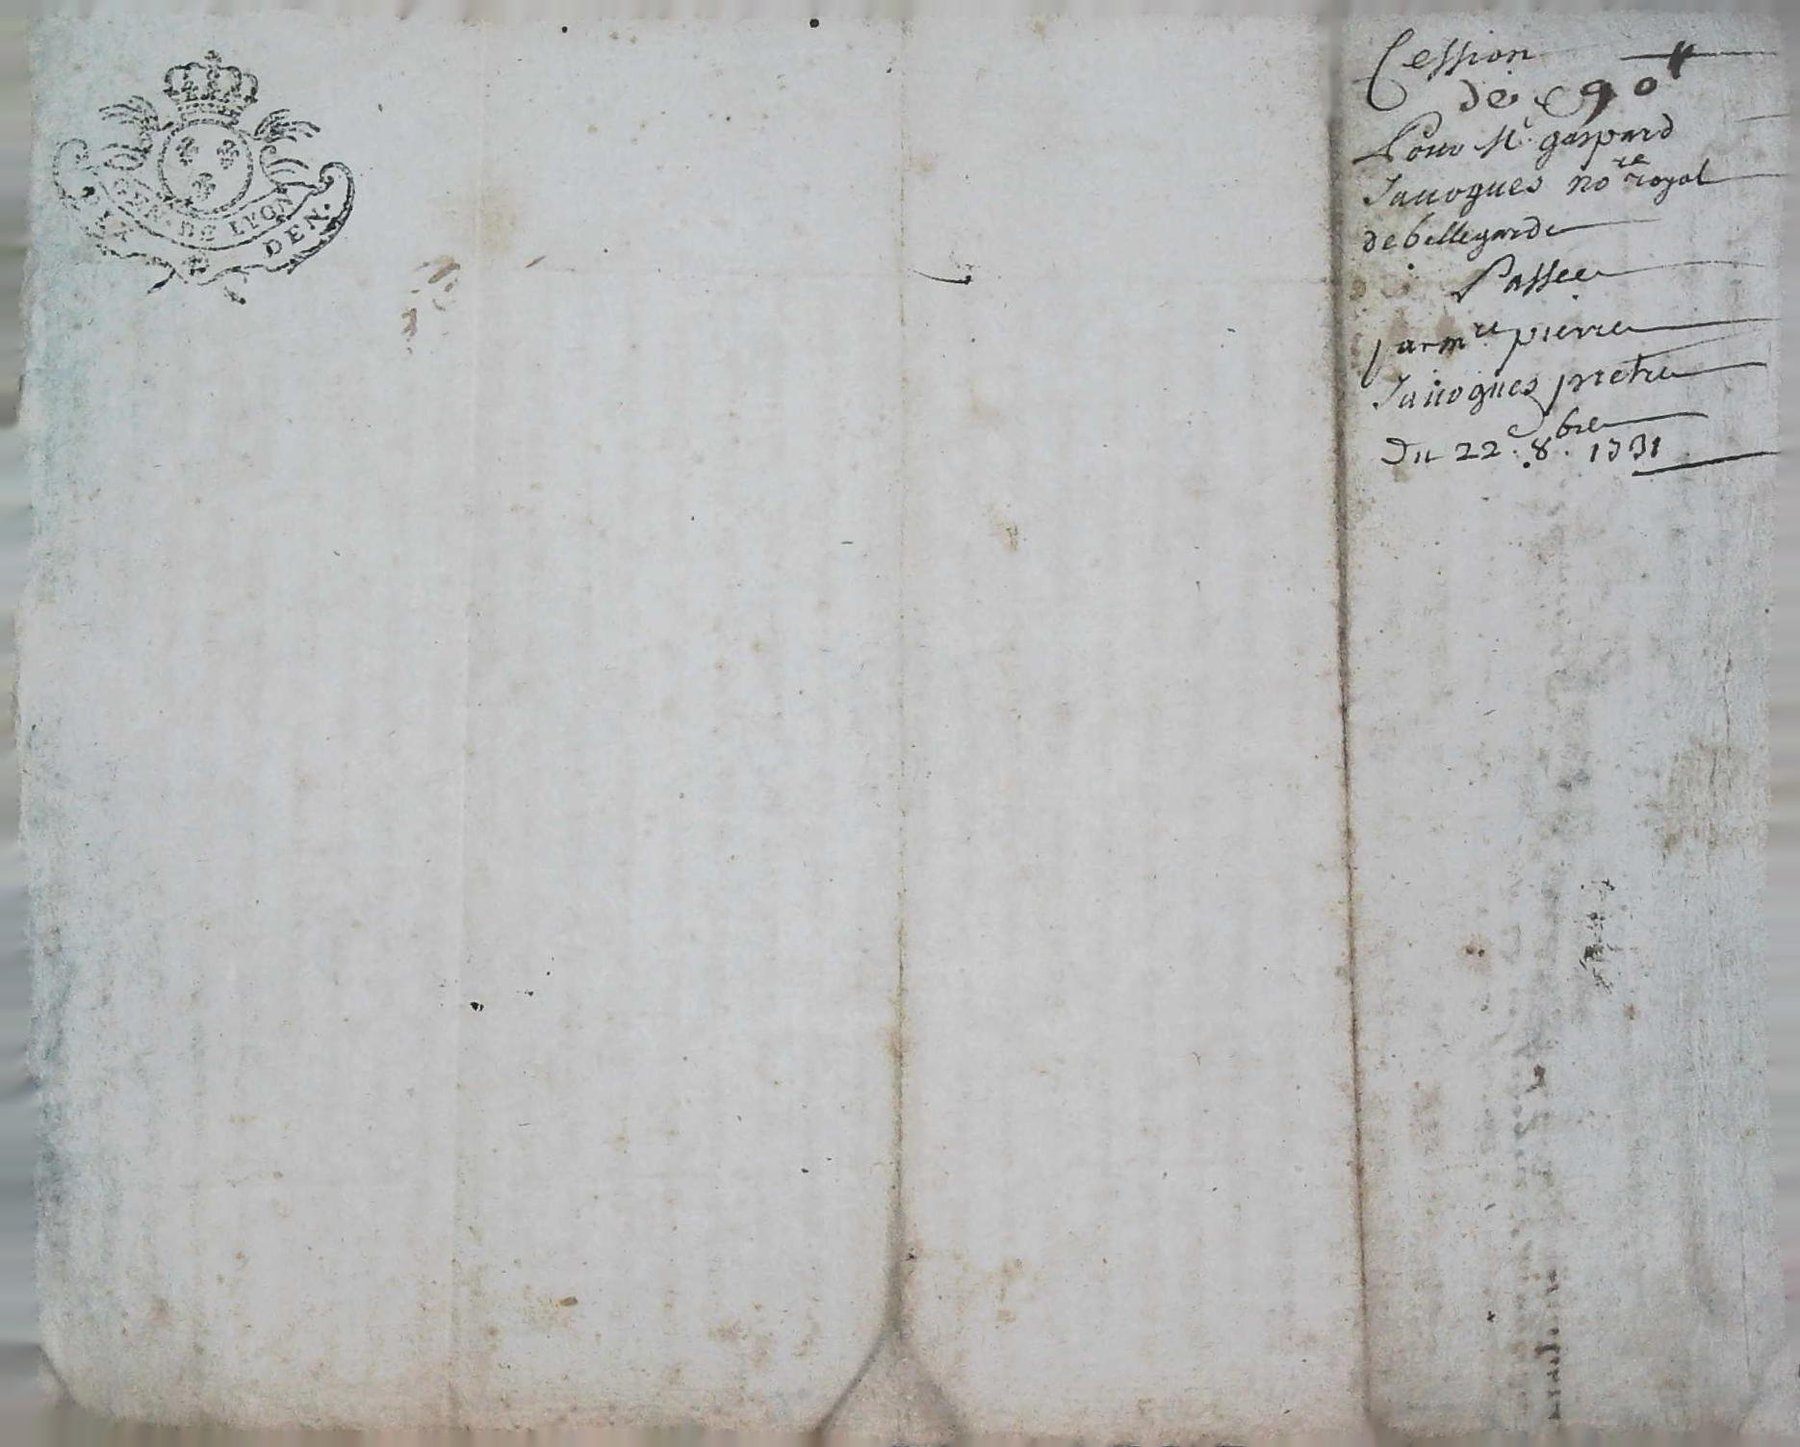 GEN. DE LYON
SIX DEN.
Cession
de 90 ₶
Pour Mr gaspard
Jauogues nore royal
de bellegarde
Passee
par mre pierre
Jauogues pretre
Du 22e 8bre 1731